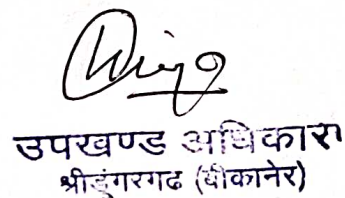 उपखण्ड अधिकारी
श्रीडुंगरगढ (बीकानेर)